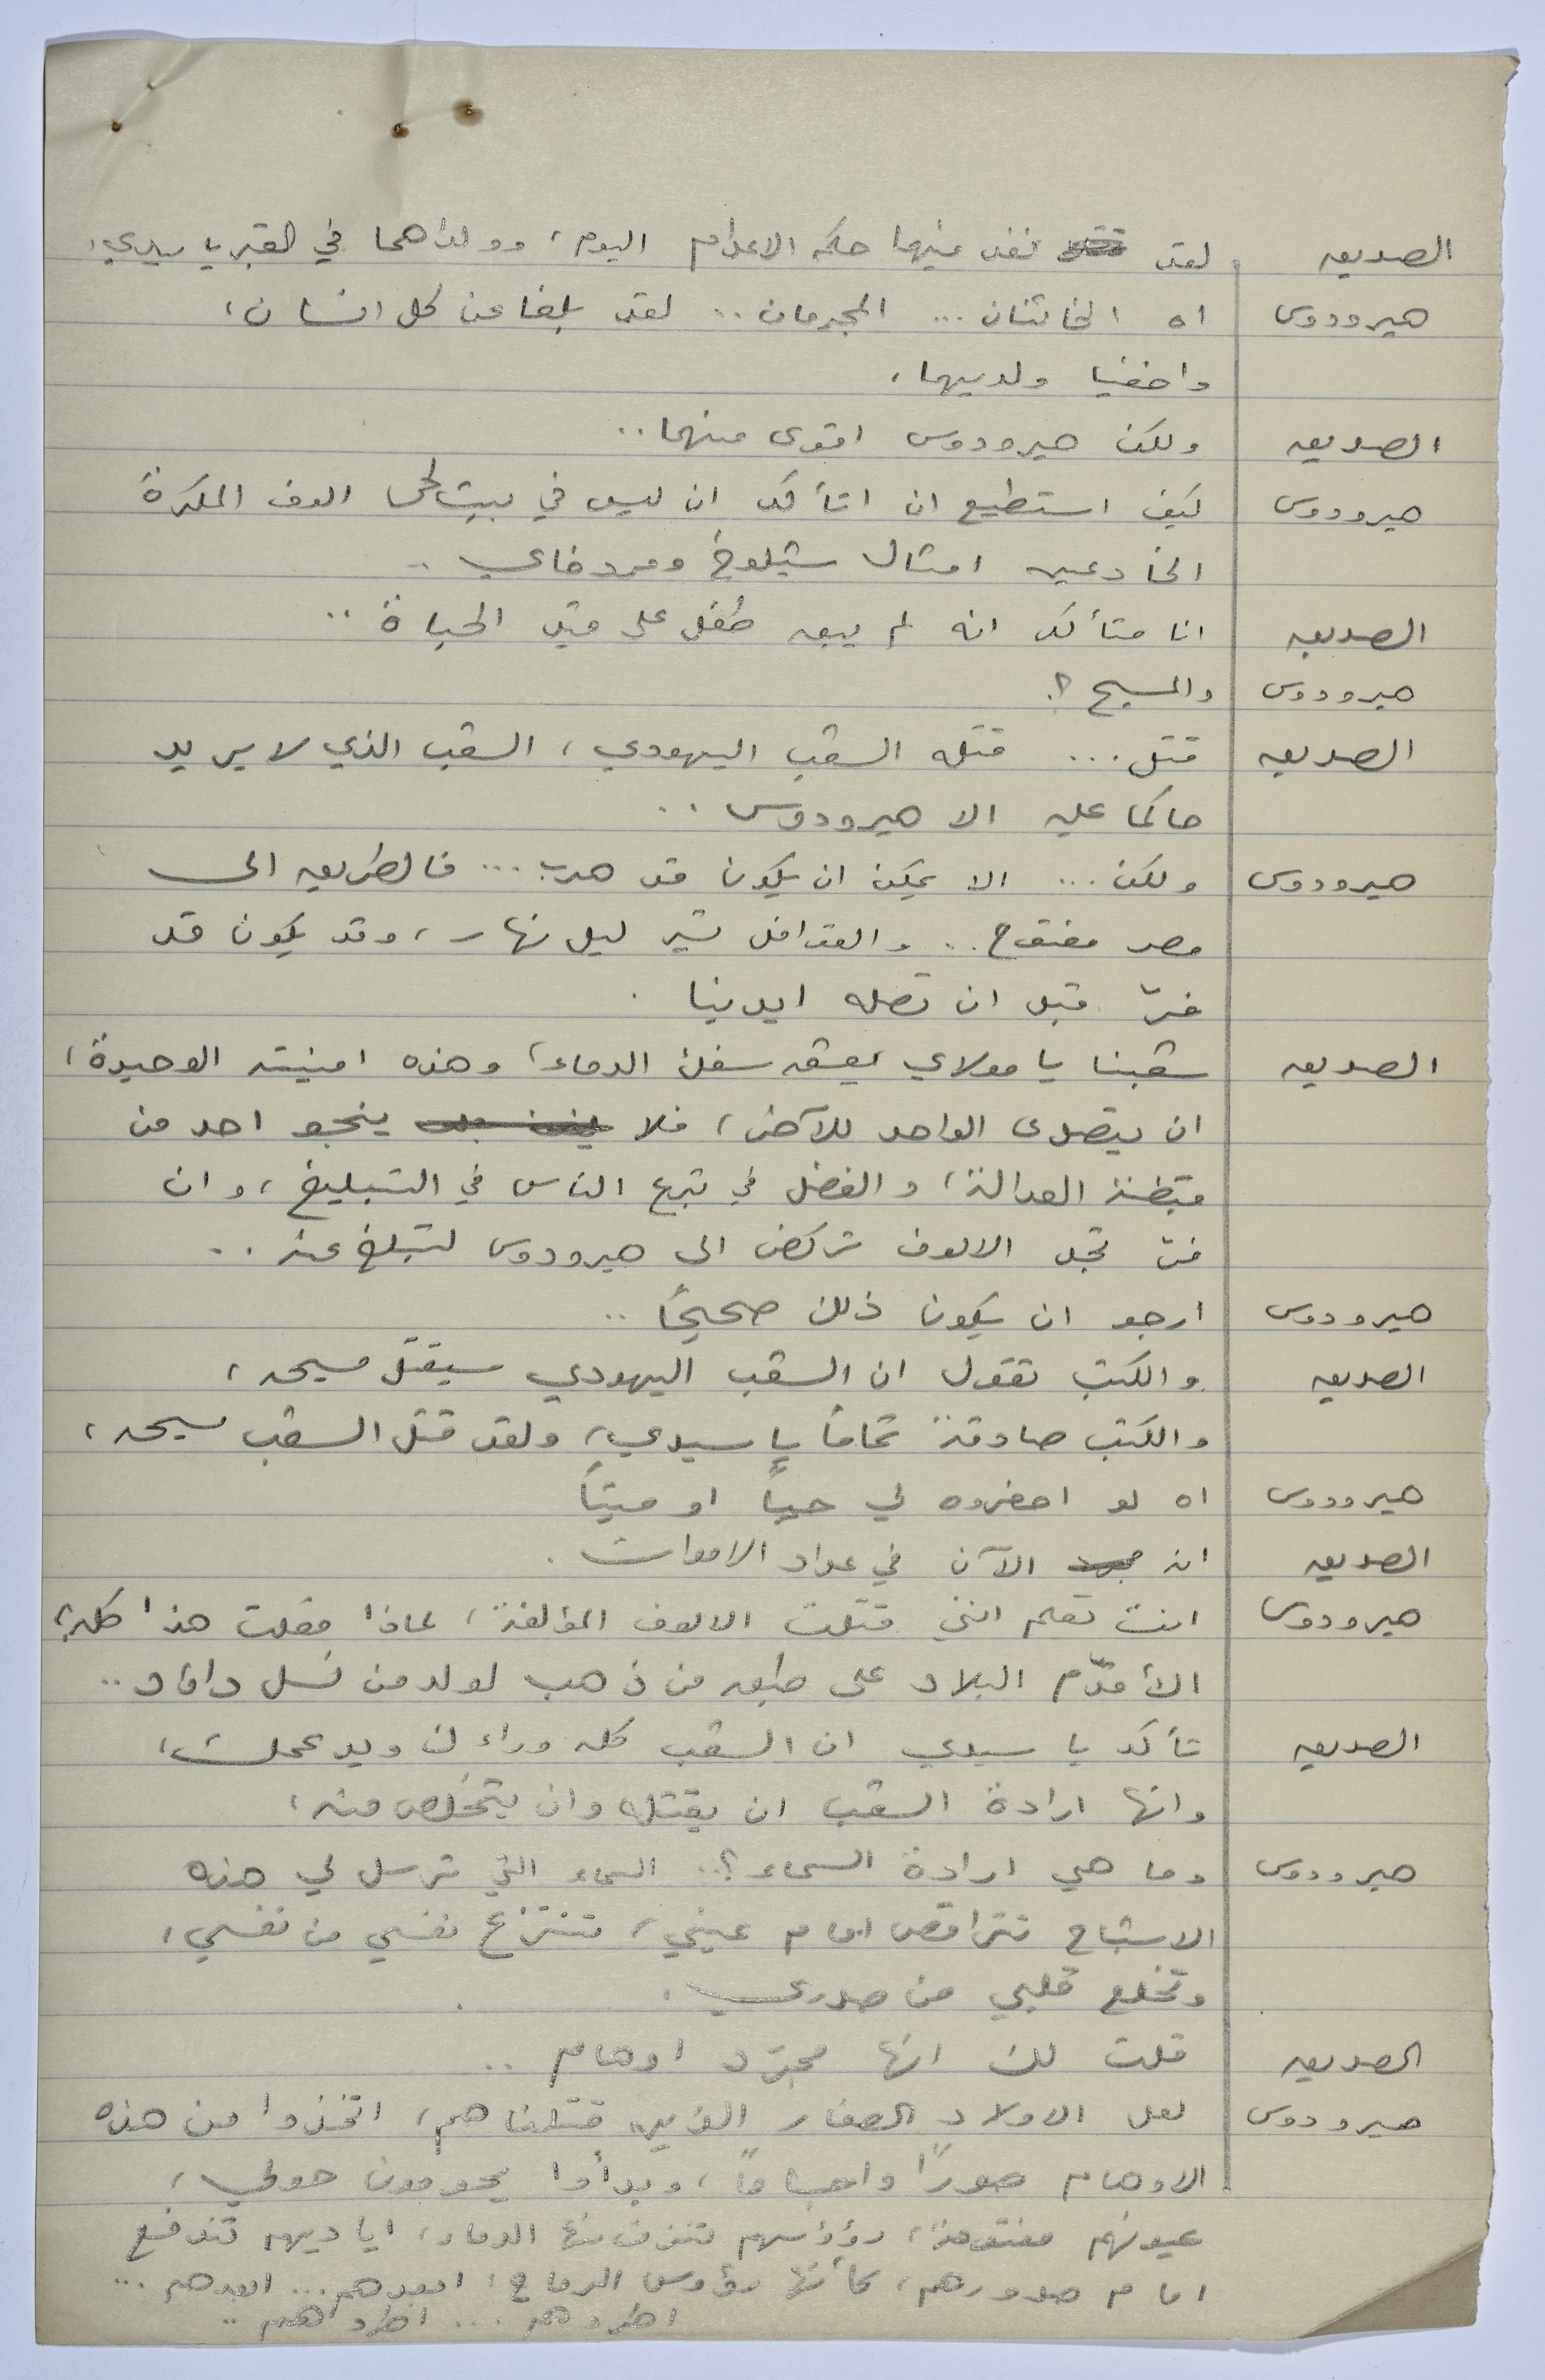 الصديق لقد نفذ فيهما حكم الاعدام اليوم، وولداهما في القبر يا سيدي،
هيرودوس اه الخائنان ... المجرمان .. لقد بلغا عن كل انسان،
واخفيا ولديهما،
الصديق ولكن هيرودوس اقوى منهما ..
هيرودوس كيف استطيع ان اتأكد ان ليس في بيت لحم الوف المكرة
الخادعين امثال شيلوخ ومردخاي ..
الصديق انا متأكد انه لم يبق طفل على قيد الحياة ..
هيرودوس والمسيح ؟
الصديق قتل ... قتله الشعب اليهودي، الشعب الذي لا يريد
حاكما عليه الا هيرودوس ..
هيرودوس ولكن ... الا يمكن ان يكون قد هرب ... فالطريق الى
مصر مفتوح .. والقوافل تسير ليل نهار، وقد يكون قد
فرّ قبل ان تصله ايدينا .
الصديق شعبنا يا مولاي يعشق سفك الدماء، وهذه امنيته الوحيدة،
ان يتصدى الواحد للآخر، فلا ينجو احد من
قبضة العدالة، والفضل في تبرع الناس في التبليغ، وان
فرّ تجد الالوف تركض الى هيرودوس لتبلغ عنه ..
هيرودوس ارجو ان يكون ذلك صحيحًا ..
الصديق والكتب تقول ان الشعب اليهودي سيقتل مسيحه،
والكتب صادقة تمامًا يا سيدي، ولقد قتل الشعب مسيحه،
هيرودوس اه لو احضروه لي حيًا او ميتًا
الصديق انه الآن في عداد الاموات .
هيرودوس انت تعلم انني قتلت الالوف المؤلفة، لماذا فعلت هذا كله؟
ألأقدّم البلاد على طبق من ذهب لولد من نسل داود ..
الصديق تأكد يا سيدي ان الشعب كله وراءك ويدعمك،
وانها ارادة الشعب ان يقتله وان يتخلص منه،
هيرودوس وما هي ارادة السماء؟ .. السماء التي ترسل لي هذه
الاشباح تتراقص امام عيني، تنتزع نفسي من نفسي،
وتخلع قلبي من صدري .
الصديق قلت لك انها مجرّد اوهام ..
هيرودوس لعل الاولاد الصغار الذين قتلناهم، اتخذوا من هذه
الاوهام صورًا واجسامًا، وبدأوا يحومون حولي،
عيونهم مفتوحة، رؤوسهم تنزف منها الدماء، اياديهم تندفع
امام صدورهم، كأنها رؤوس الرماح، ابعدهم ... ابعدهم ...
اطردهم ... اطردهم ..